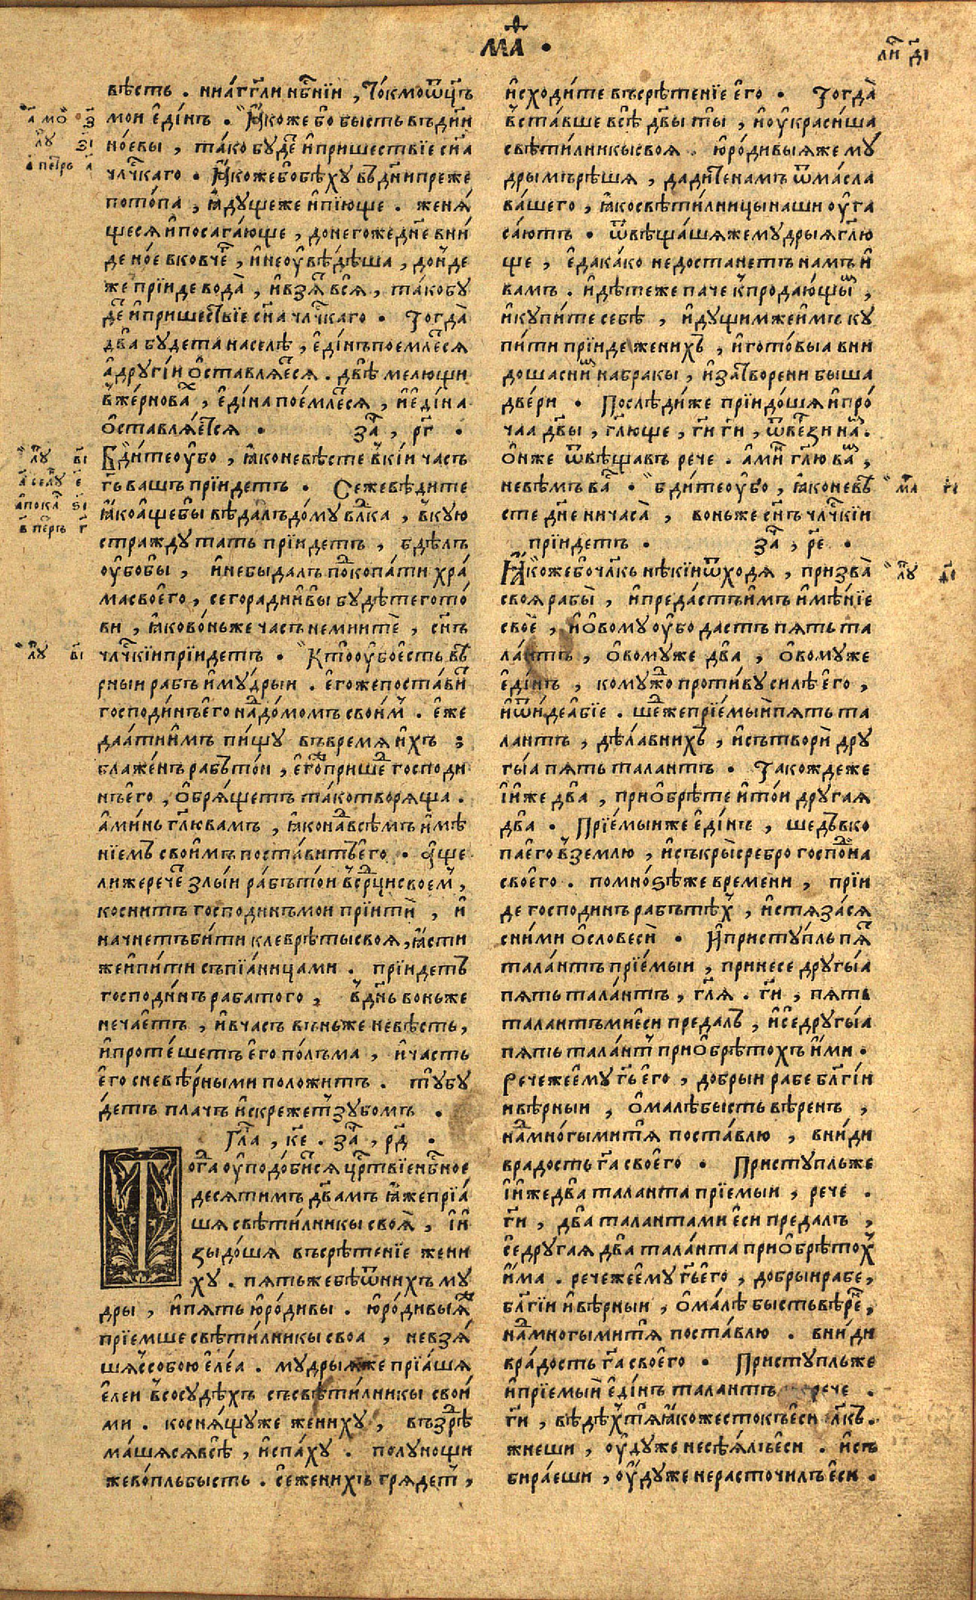 маѳ ·
ли ді
вѣсть . ни аггли нбⷭнїи , токмо ѿцъ
мои едінъ . Ꙗкоже бо бысть въ дни
ноевы , тако будеⷮ и пришествїе сн҃а
члчⷭкаго . Ꙗкоже бо бѣху въ дни преже
потопа , ꙗдуще же и пїюще . женѧ
щесѧ и посагающе , до негоже дне вни
де ное в ковчеⷢ , и не оувѣдѣша , дойде
же прїиде вода , и взѧⷮ всѧ , тако бу
деⷮ и пришествїе сн҃а члчⷭкаго . Тогда
два будета на селѣ , едінъ поемлеⷮсѧ
а другіи ѡставлѧеⷮсѧ . двѣ мелющи
в жерноваⷯ , едіна поемлеⷮсѧ , и едіна
ѡставлѧетсѧ . заⷱ , рг .
Бдите оубо , ꙗко не вѣсте в кіи часъ
гь вашъ прїидетъ . Се же ведите
ꙗко аще бы вѣдалъ дому влⷣка , в кую
стражду тать прїидетъ , бдѣлъ
оубо бы , и не бы далъ покопати хра
ма своего , сего ради и вы будѣте гото
ви , ꙗко в онь же часъ не мните , сн҃ъ
члчⷭкіи прїидетъ . Кто оубо есть вѣ
рныи рабъ и мудрыи . егоже постави
господинъ его над домомъ своимъ . еже
даати имъ пищу въ время ихъ ;
блаженъ рабъ тои , егоже пришеⷣ господи
нъ его , обрящетъ тако творяща .
аминь глю вамъ , ꙗко над всѣмъ имѣ
нїемъ своимъ поставитъ его . Аще
ли же речеⷮ злыи рабъ тои в срⷣци своемъ ,
коснитъ господинъ мои прїити , и
начнетъ бити клеврѣты своя , ꙗсти
же и пити съ пїаницами . прїидетъ
господинъ раба того , в днь в онь же
не чаетъ , и в часъ в онь же не вѣсть ,
и протешетъ его полъма , и часть
его с невѣрными положитъ . ту бу
детъ плачъ и скрежетъ зубомъ .
Глⷡа , ке . заⷱ , рд .
Тогⷣа оуподобисѧ црⷭтвїе нбⷭное
десѧтимъ двⷡамъ ꙗже прїа
шѧ свѣтилники своѧ , и и
зыдошѧ въ срѣтенїе жени
ху . пѧть же бѣ ѿ нихъ му
дры , и пѧть юродивы . юродивыѧ
прїемше свѣтилники своа , не взѧ
шѧ с собою елеа . мудрыѧ же прїашѧ
елеи в сосудѣхъ съ свѣтилники свои
ми . коснѧщу же жениху , въздрѣ
машѧсѧ всѣ , и спаху . полунощи
же вопль бысть . се женихъ грѧдетъ ,
исходите въ срѣтенїе его . Тогда
вставше всѣ двⷡы ты , и оукрасиша
свѣтилники своя . юродивыя же му
дрымъ рѣшѧ , дадите намъ ѿ масла
вашего , ꙗко свѣтилницы наши оуга
саютъ . ѿвѣщашѧ же мудрыя глю
ще , еда како не достанетъ намъ и
вамъ . идѣте же паче к продающыⷨ ,
и купите себѣ , идущим же имъ ку
пити прїиде женихъ , и готовыа вни
доша с ниⷨ на бракы , и затворени быша
двери . Послѣди же прїидошѧ и про
чаа двⷡы , глюще , ги ги , ѿвеⷬзи наⷨ .
Он же ѿвѣщавъ рече . аминь глю ваⷨ ,
не вѣмъ ваⷭ . бдите оубо , ꙗко не вѣ
сте дне ни часа , в оньже сн҃ъ члчⷭкіи
прїидетъ . заⷱ , ре .
Ꙗкоже бо члⷡкъ нѣкіи ѿходѧ , призва
своя рабы , и предастъ имъ имѣнїе
свое , и овому оубо дастъ пѧть та
лантъ , овому же два , овому же
едінъ , комужⷣо противу силѣ его ,
и ѿиде абїе . шеⷣ же прїемый пѧть та
лантъ , дѣла в нихъ , и сътвори дру
гіа пѧть талантъ . Такожде же
и иже два , приобрѣте и тои другая
два . Прїемыи же едінъ , шедъ вко
па его в землю , и съкры сребро господина
своего . по мнозѣ же времени , прїи
де господинъ рабъ тѣхъ , и стяза сѧ
с ними о словеси . И приступль пѧⷮ
талантъ прїемыи , принесе другыа
пѧть талантъ , глѧ . ги , пѧть
талантъ ми еси предалъ , и се другыа
пѧть талантъ приобрѣтохъ ими .
Рече же ему гь его , добрыи рабе благіи
и вѣрныи , о малѣ бысть вѣренъ ,
над многыми тѧ поставлю , вниди
в радость га своего . Приступль же
и иже два таланта прїемыи , рече .
ги , два таланта ми еси предалъ ,
се другая два таланта приобрѣтоⷯ
има . рече же ему гь его , добрыи рабе ,
благіи и вѣрныи , о малѣ бысть вѣреⷩ ,
над многыми тѧ поставлю . вниди
в радость га своего . Приступль же
и прїемый едінъ талантъ рече .
ги , вѣдѣхъ тѧ ꙗко жестокъ еси члⷡкъ .
жнеши , оудуже не сѣялъ еси . и съ
бираеши , оудуже не расточилъ еси .